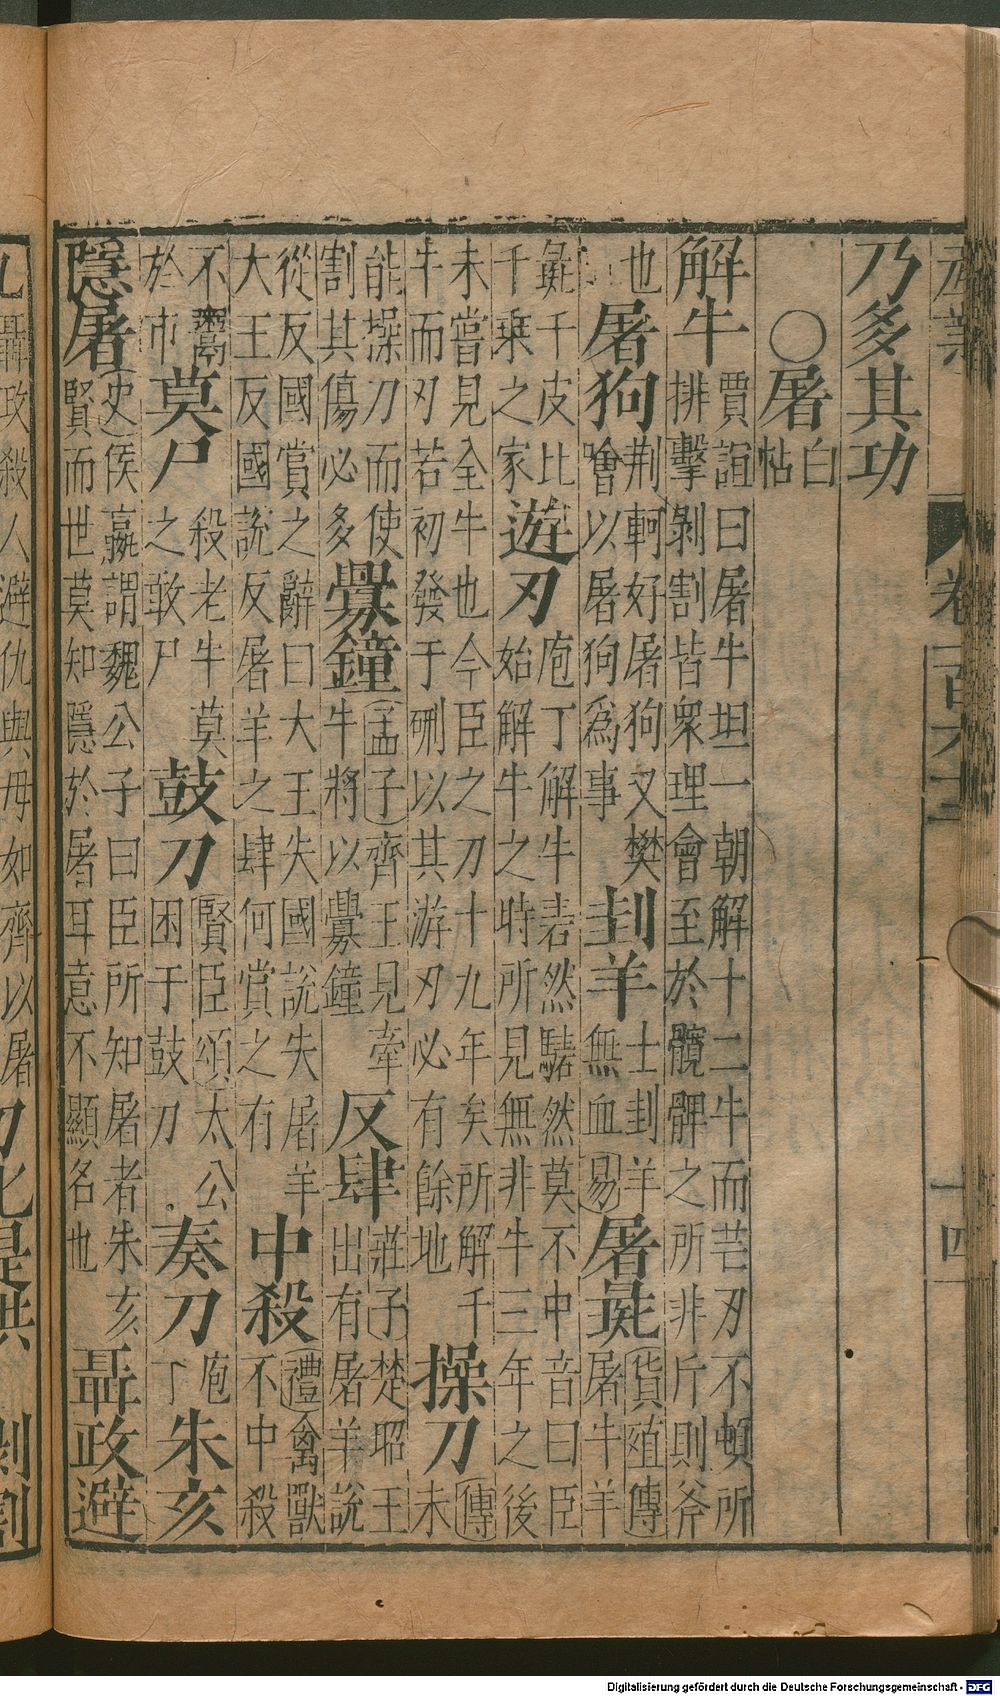 産業 卷一百六十二 十四
乃多其功
○屠白帖
解牛賈誼曰屠牛坦一朝解十二牛而芒刃不頓所
排擊剝割皆衆理會至於髖髀之所非斤則斧
也屠狗荆軻好屠狗又樊
噲以屠狗爲事刲羊士刲羊
無血易屠彘貨殖傳
屠牛羊
彘千皮比
千乘之家遊刃庖丁解牛砉然騞然莫不中音曰臣
始解牛之時所見無非牛三年之後
未嘗見全牛也今臣之刀十九年矣所解千
牛而刃若初發于硎以其游刃必有餘地操刀傳
未
能操刀而使
割其傷必多釁鐘孟子齊王見牽
牛將以釁鐘反肆莊子楚昭王
出有屠羊說
從反國賞之辭曰大王失國說失屠羊
大王反國說反屠羊之肆何賞之有中殺禮禽獸
不中殺
不鬻
於市莫尸殺老牛莫
之敢尸鼓刀賢臣頌太公
困于鼓刀奏刀庖
丁朱亥
隱屠史侯嬴謂魏公子曰臣所知屠者朱亥
賢而世莫知隱於屠耳意不顯名也聶政避
聶政殺人避仇與母如齊以屠刀匕是共剝割
Digitalisierung gefördert durch die Deutsche Forschungsgemeinschaft - DFG